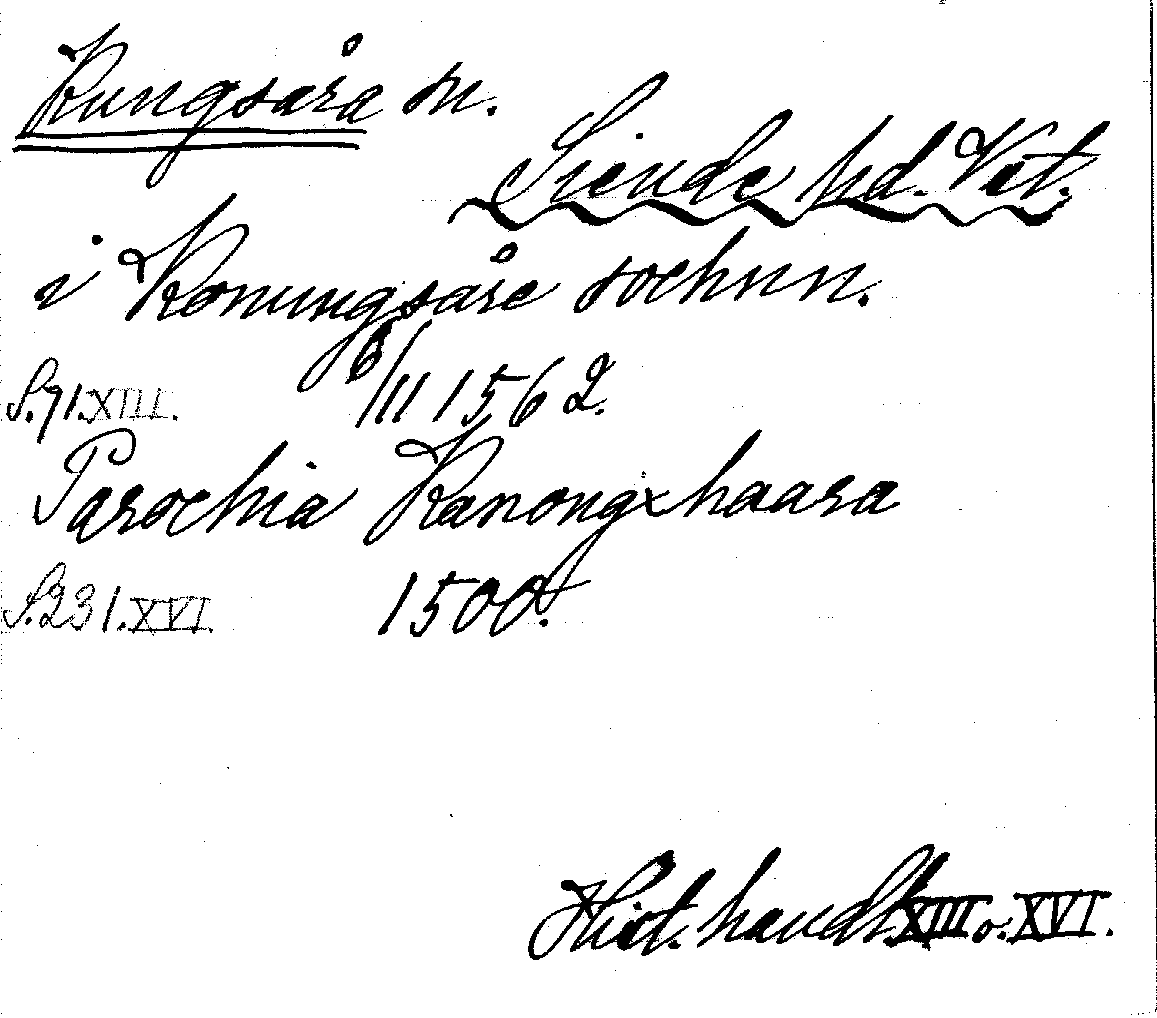 Kungsåra sn.
Siende hd. Vst.
i Konungsåre sochnn.
S.71.XIII. 6/11 1562.
Parochia Kanongxhaara
S.231.XVI. 1500.
Hist. handl. XIII o. XVI.